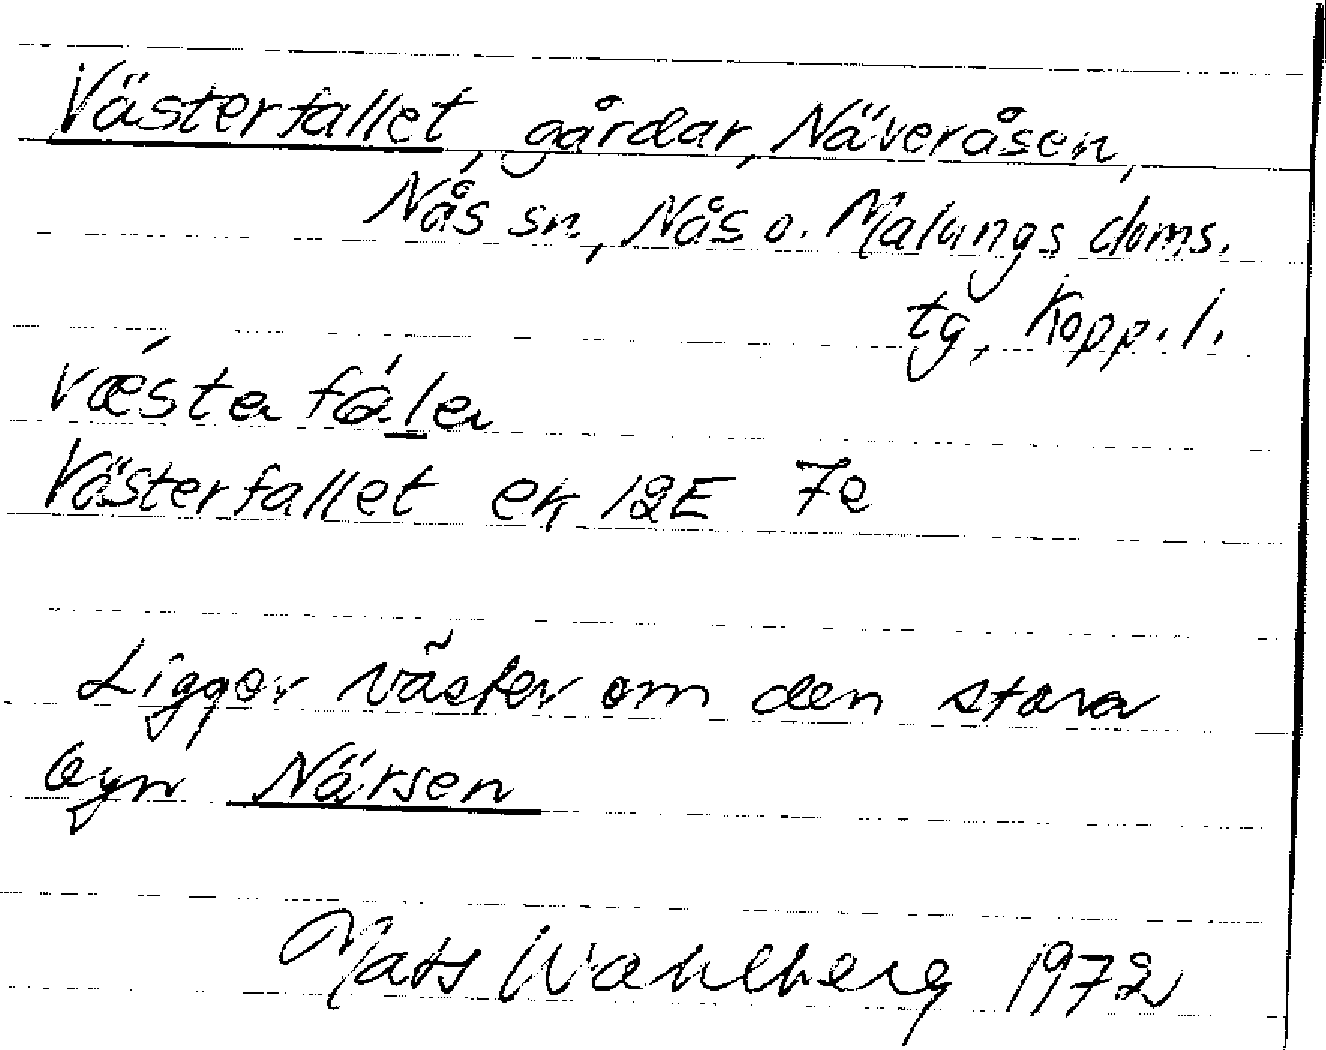 Västerfallet, gårdar, Näveråsen,
Nås sn, Nås o. Malungs doms.
tg, Kopp. l.
Västerfallet ek 12E 7e
Ligger väster om den stora
byn Närsen
Mats Wahlberg 1972